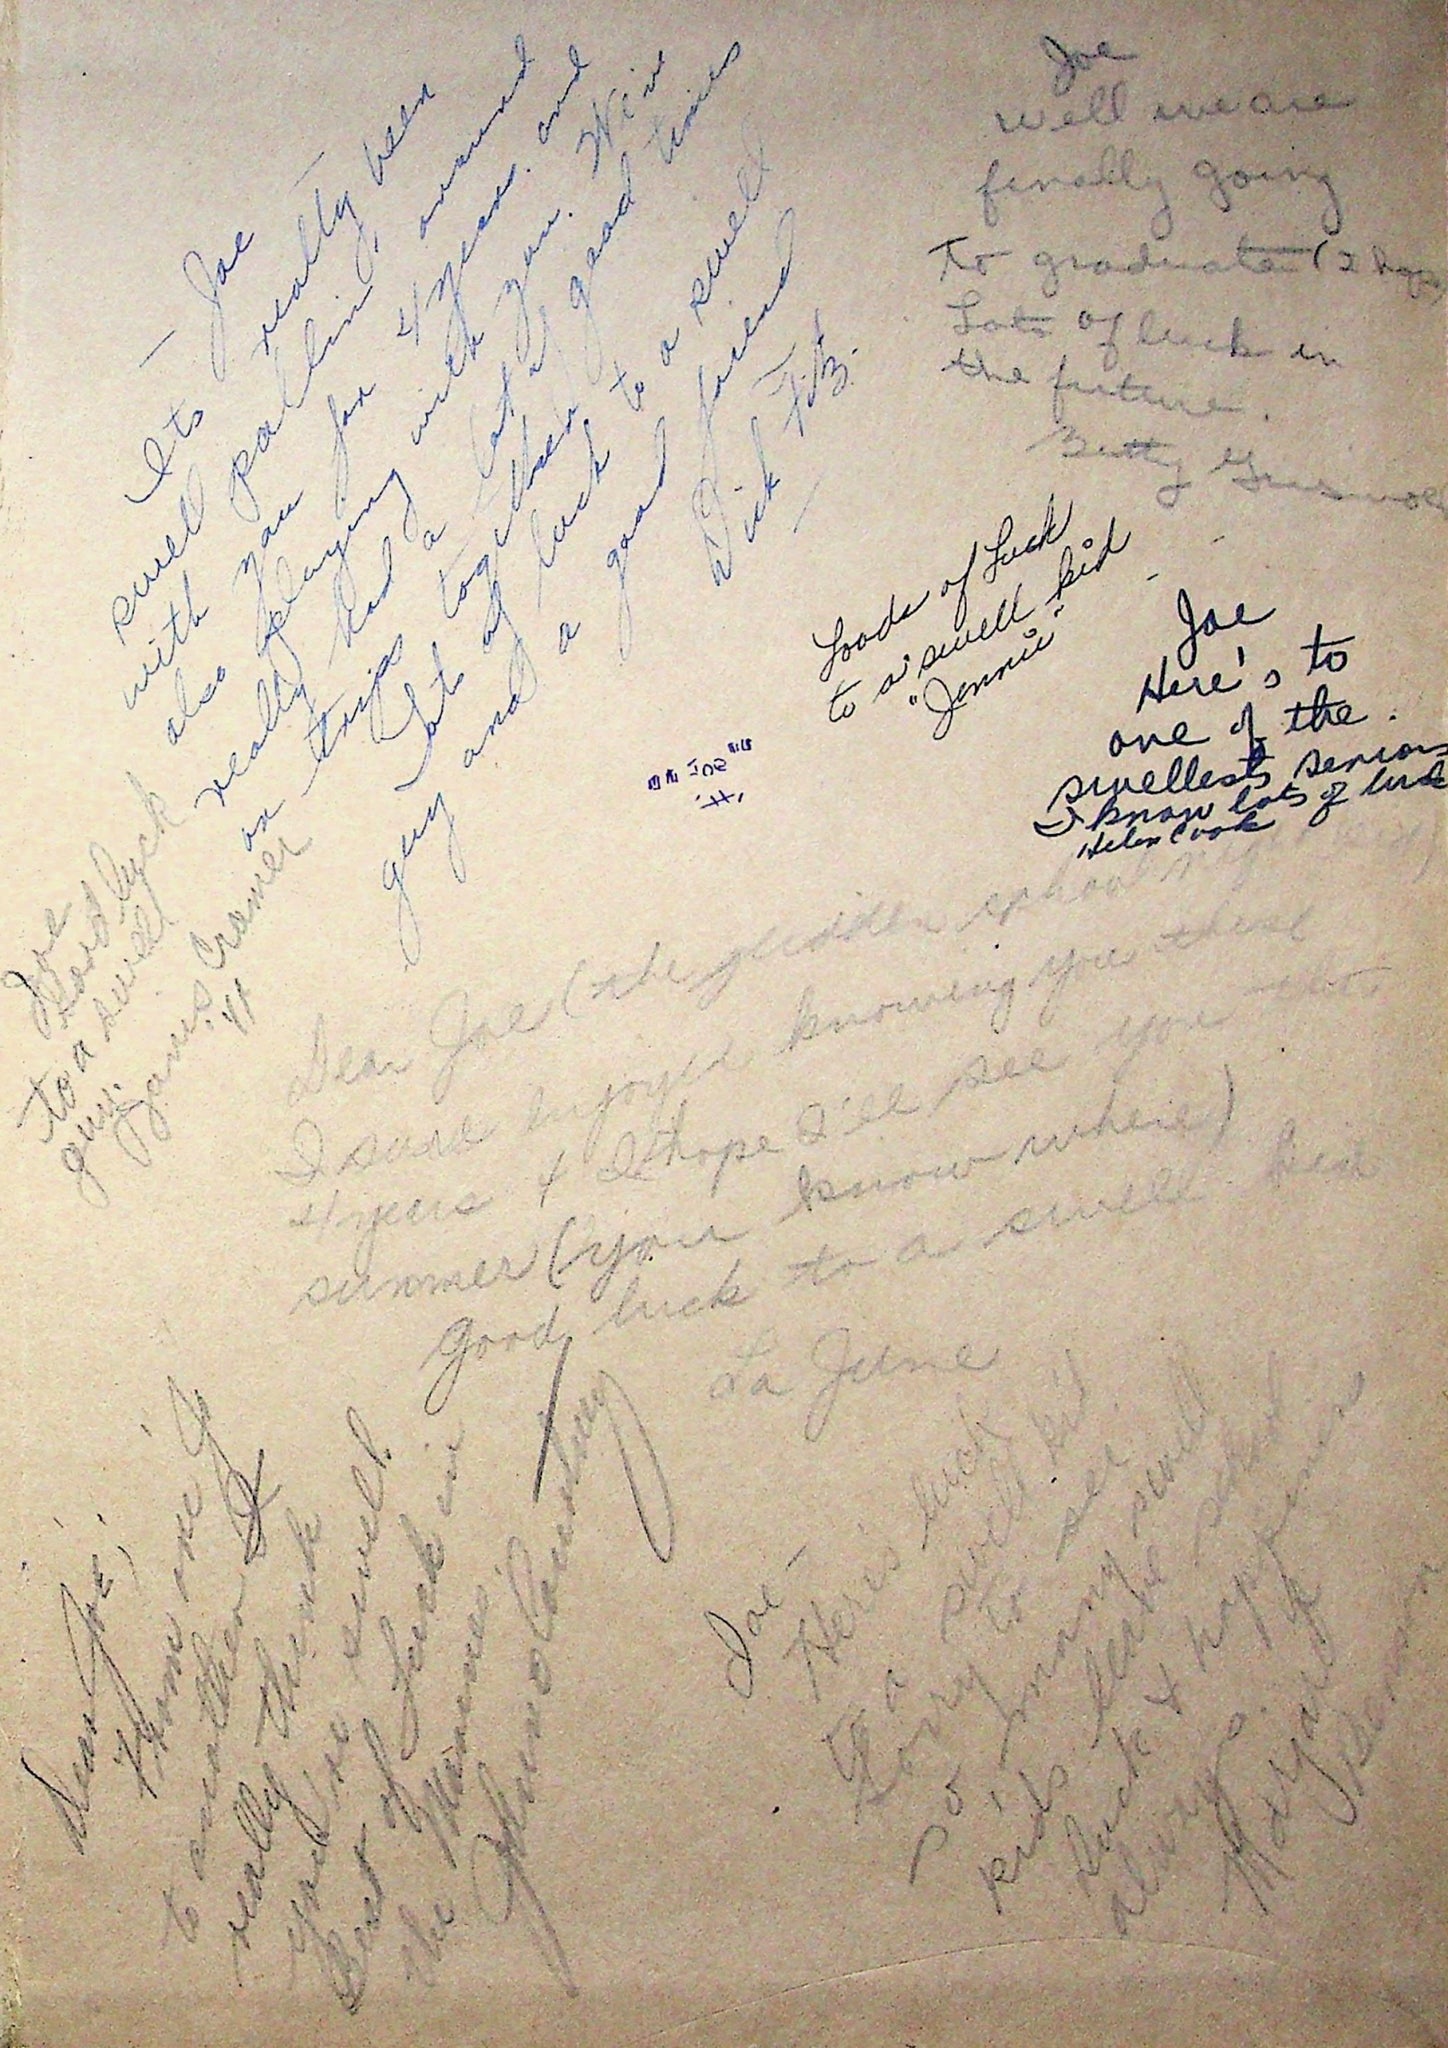 — Joe —
Its really been
swell palling around
with you for 4 years. and
also playing with you. We've
really had a lot of good times
on trips together
Lots of luck to a swell
guy and a good friend
Dick Fitz.
Joe
Well we are
finally going
To graduate (2 days)
Lots of luck in
the future.
Betty Griswold
Loads of Luck
to a "swell" kid
"Jennie"
Joe
Here's to
one of the
swellests seniors
I know lots of luck
Helen Cook
Joe
Good luck
to a swell
guy.
Janis Cramer
'44
Dear Joe (the
I sure enjoyed knowing you these
4 years & I hope I'll see you this
summer (you know where)
Good luck to a swell kid
La June
Dear Joe,
From one Jo
to another I
really think
you're swell.
Best of luck in
the
Joe —
Here's luck
to a swell kid.
Sorry to see
so many swell
kids leave school
Luck & happiness
always
Marjorie